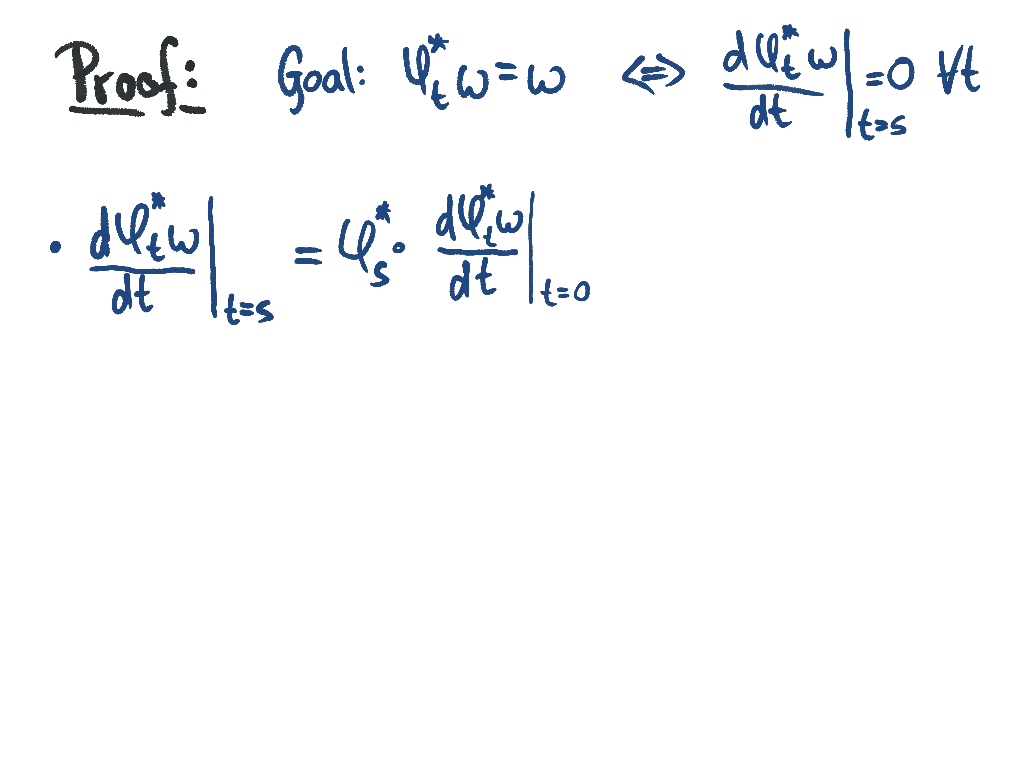 Proof: Goal: φ_t^* ω = ω ⟺ dφ_t^* ω / dt |_{t=s} = 0 ∀t
• dφ_t^* ω / dt |_{t=s} = φ_s^* ∘ dφ_t^* ω / dt |_{t=0}